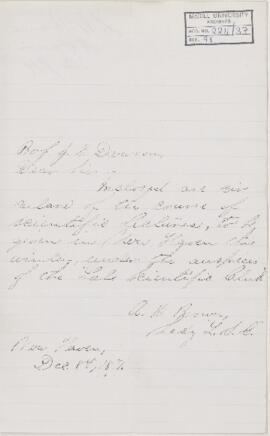 McGILL UNIVERSITY
ARCHIVES
ACC. NO. 2211/37
REF. 98
Prof J W Dawson,
Dear Sir,
Enclosed are cir
culars of the course of
scientific lectures, to be
given in New Haven this
winter, under the auspices
of the Yale Scientific Club
Secy
New Haven,
Dec. 8th, 187